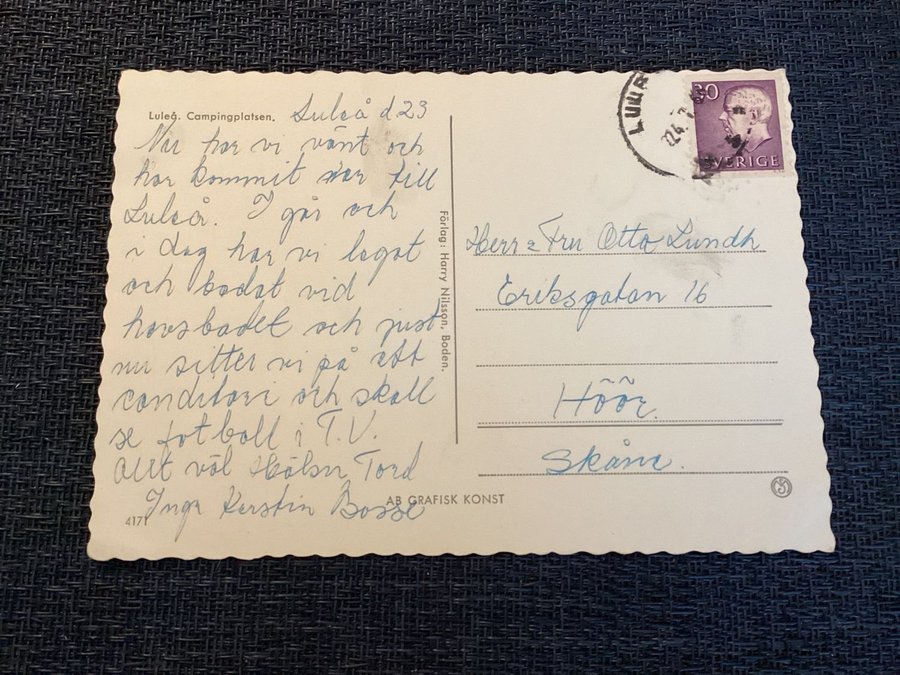 Luleå. Campingplatsen.
Luleå d 23
Nu har vi vänt och
har kommit ner till
Luleå. I går och
i dag har vi legat
och badat vid
havsbadet och just
nu sitter vi på ett
conditori och skall
se fotboll i T.V.
Allt väl Hälsn Tord
Inga Kerstin Bosse
4171
AB GRAFISK KONST
Förlag: Harry Nilsson, Boden.
SVERIGE
Herr & Fru Otto Lundh
Eriksgatan 16
Höör.
Skåne.